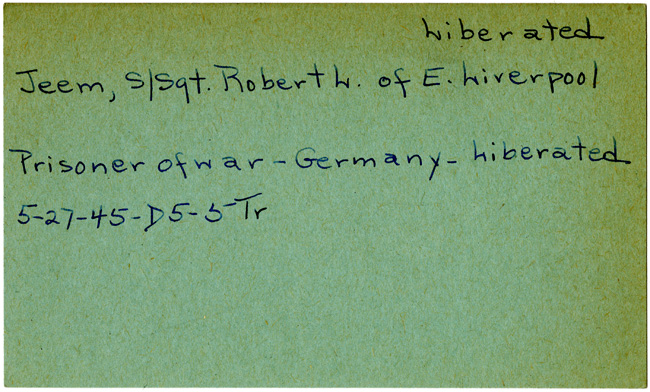 Liberated
Jeem, S/Sgt. Robert L. of E. Liverpool
Prisoner of war - Germany - Liberated
5-27-45-D5-5 Tr